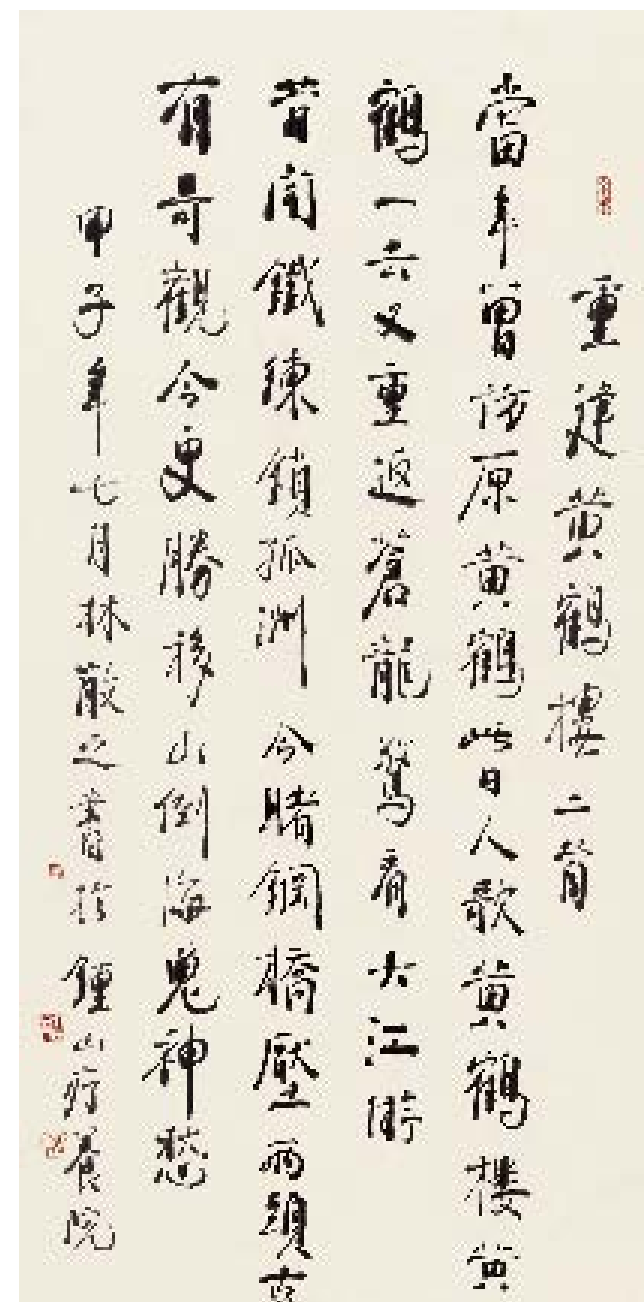 重建黄鶴樓二首
當年曾訪原黄鶴此日人歌黄鶴樓黄
鶴一去又重返蒼龍驚看大江
昔聞鐵練鎖孤洲今睹鋼橋壓兩頭古
有奇觀今更勝移山倒海鬼神愁
甲子年七月林散之書於鍾山療養院